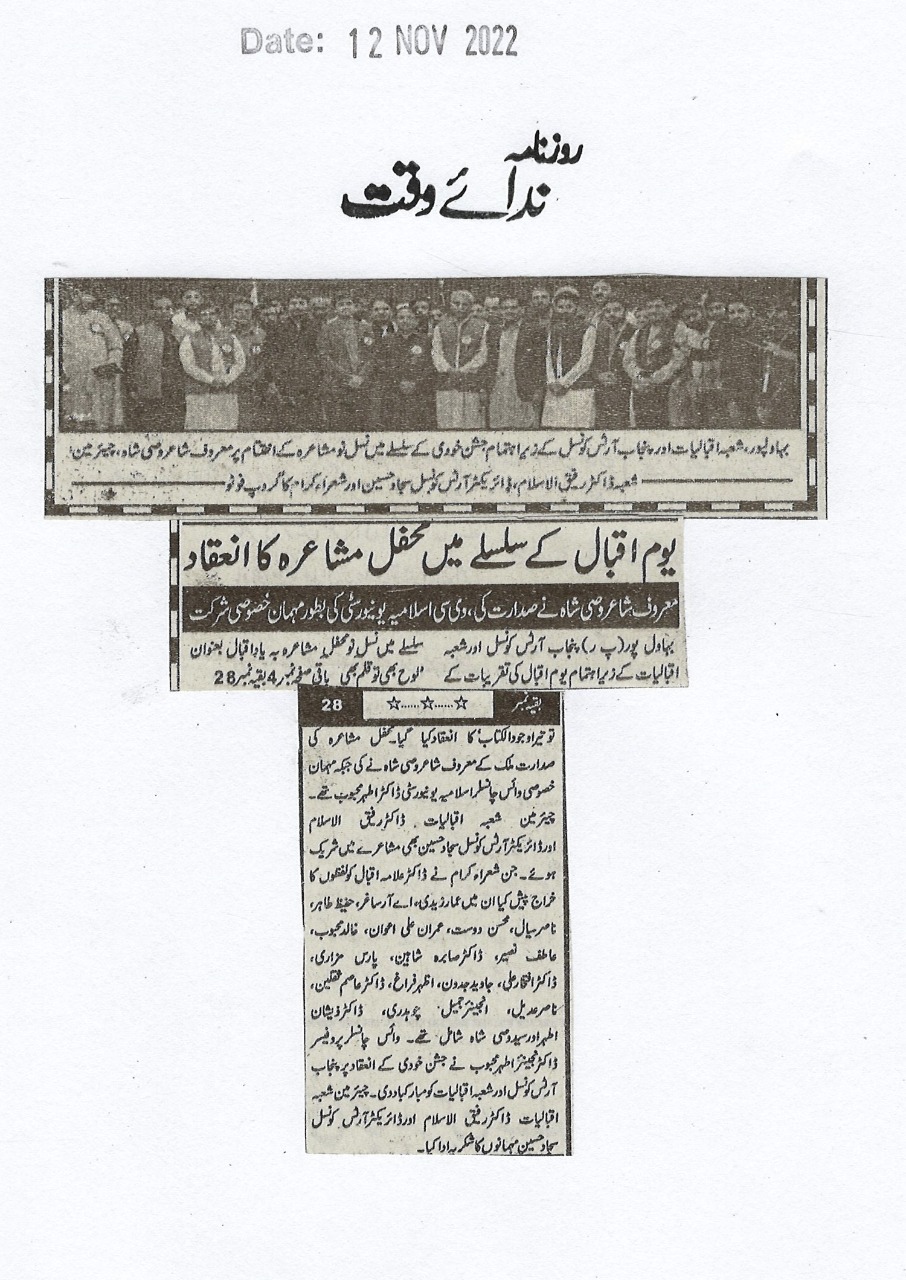 Date: 12 NOV 2022
روزنامہ
ندائے وقت
بہاولپور، شعبہ اقبالیات اور پنجاب آرٹس کونسل کے زیر اہتمام جشن خودی کے سلسلے میں نسل نو مشاعرہ کے اختتام پر معروف شاعر وصی شاہ، چیئرمین
شعبہ ڈاکٹر رفیق الاسلام، ڈائریکٹر آرٹس کونسل سجاد حسین اور شعراء کرام کا گروپ فوٹو
یوم اقبال کے سلسلے میں محفل مشاعرہ کا انعقاد
معروف شاعر وصی شاہ نے صدارت کی، وی سی اسلامیہ یونیورسٹی کی بطور مہمان خصوصی شرکت
بہاول پور (پ ر) پنجاب آرٹس کونسل اور شعبہ
اقبالیات کے زیر اہتمام یوم اقبال کی تقریبات کے
سلسلے میں نسل نو محفل مشاعرہ بہ یاد اقبال بعنوان
"لوح بھی تو قلم بھی باقی صفحہ نمبر 4 بقیہ نمبر 28
بقیہ نمبر ☆......☆......☆ 28
تو تیرا وجود الکتاب" کا انعقاد کیا گیا۔ محفل مشاعرہ کی
صدارت ملک کے معروف شاعر وصی شاہ نے کی جبکہ مہمان
خصوصی وائس چانسلر اسلامیہ یونیورسٹی ڈاکٹر اطہر محبوب تھے۔
چیئرمین شعبہ اقبالیات ڈاکٹر رفیق الاسلام
اور ڈائریکٹر آرٹس کونسل سجاد حسین بھی مشاعرے میں شریک
ہوئے۔ جن شعراء کرام نے ڈاکٹر علامہ اقبال کو لفظوں کا
خراج پیش کیا ان میں عمار زیدی، اے آر ساغر، حفیظ طاہر،
ناصر سیال، محسن دوست، عمران علی اعوان، خالد محبوب،
عاطف نصیر، ڈاکٹر صابرہ شاہین، پارس مزاری،
ڈاکٹر افتخار علی، جاوید جدون، اظہر فراغ، ڈاکٹر عاصم ثقلین،
ناصر عدیل، انجینئر جمیل چوہدری، ڈاکٹر ذیشان
اطہر اور سید وصی شاہ شامل تھے۔ وائس چانسلر پروفیسر
ڈاکٹر انجینئر اطہر محبوب نے جشن خودی کے انعقاد پر پنجاب
آرٹس کونسل اور شعبہ اقبالیات کو مبارکباد دی۔ چیئرمین شعبہ
اقبالیات ڈاکٹر رفیق الاسلام اور ڈائریکٹر آرٹس کونسل
سجاد حسین مہمانوں کا شکریہ ادا کیا۔